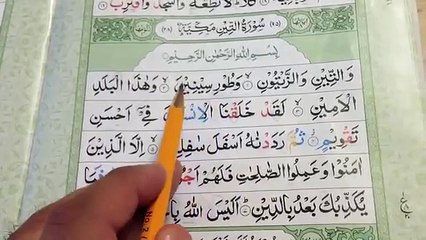 كَلَّا لَا تُطِعْهُ وَاسْجُدْ وَاقْتَرِبْ
(٩٥) سُوْرَةُ التِّيْنِ مَكِّيَّةٌ (٢٨)
بِسْمِ اللّٰهِ الرَّحْمٰنِ الرَّحِيْمِ
وَالتِّيْنِ وَالزَّيْتُوْنِ ۙ۝١ وَطُوْرِ سِيْنِيْنَ ۙ۝٢ وَهٰذَا الْبَلَدِ
الْاَمِيْنِ ۙ۝٣ لَقَدْ خَلَقْنَا الْاِنْسَانَ فِيْۤ اَحْسَنِ
تَقْوِيْمٍ ۝٤ ثُمَّ رَدَدْنٰهُ اَسْفَلَ سٰفِلِيْنَ ۝٥ اِلَّا الَّذِيْنَ
اٰمَنُوْا وَعَمِلُوا الصّٰلِحٰتِ فَلَهُمْ
يُكَذِّبُكَ بَعْدُ بِالدِّيْنِ ۝٧ اَلَيْسَ اللّٰهُ